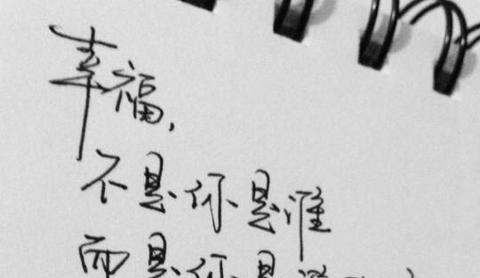 幸福,
不是你是谁
而是你是